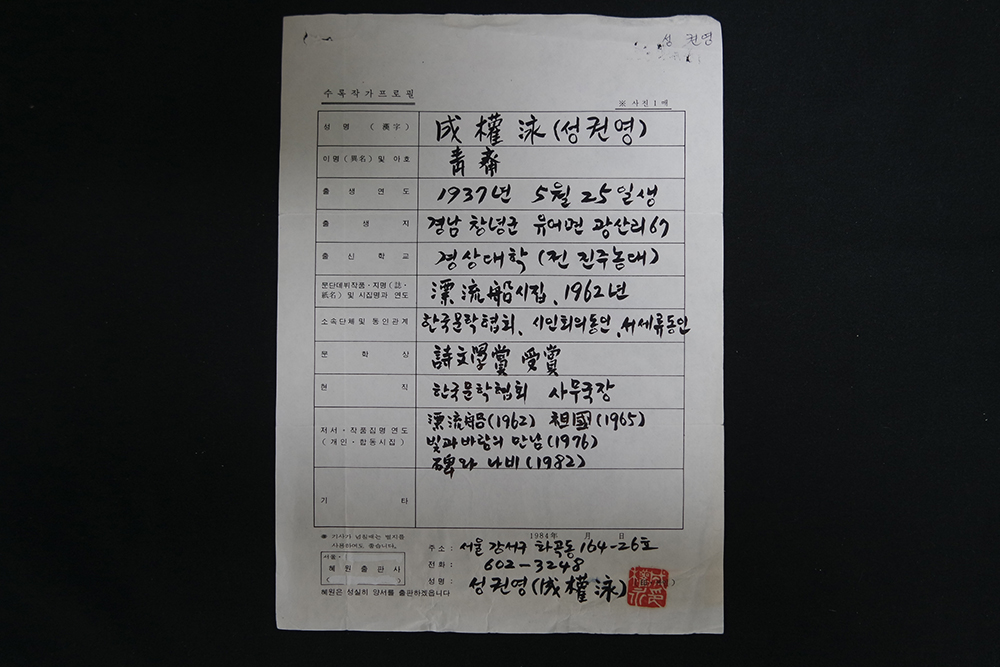 성 권영
수록작가프로필
※ 사진 1 매
성 명 (漢字) 成 權 泳 (성권영)
이명(異名) 및 아호 靑 齋
출 생 연 도 1937년 5월 25일생
출 생 지 경남 창녕군 유어면 광산리 67
출 신 학 교 경상대학 (전 진주농대)
문단데뷔작품·지명(誌·
紙名) 및 시집명과 연도 漂流船시집, 1962년
소속단체 및 동인관계 한국문학협회, 시인회의동인, 서세류동인
문 학 상 詩文學賞 受賞
현 직 한국문학협회 사무국장
저서·작품집명 연도
(개인·합동시집)
漂流船(1962) 祖國(1965)
빛과 바람의 만남(1976)
碑와 나비(1982)
기 타
※ 기사가 넘칠때는 별지를
사용하여도 좋습니다.
1984年 月 日
주소 : 서울 강서구 화곡동 164-26호
전화 : 602-3248
성명 : 성권영(成權泳)
서울·
혜원출판사
혜원은 성실히 양서를 출판하겠읍니다